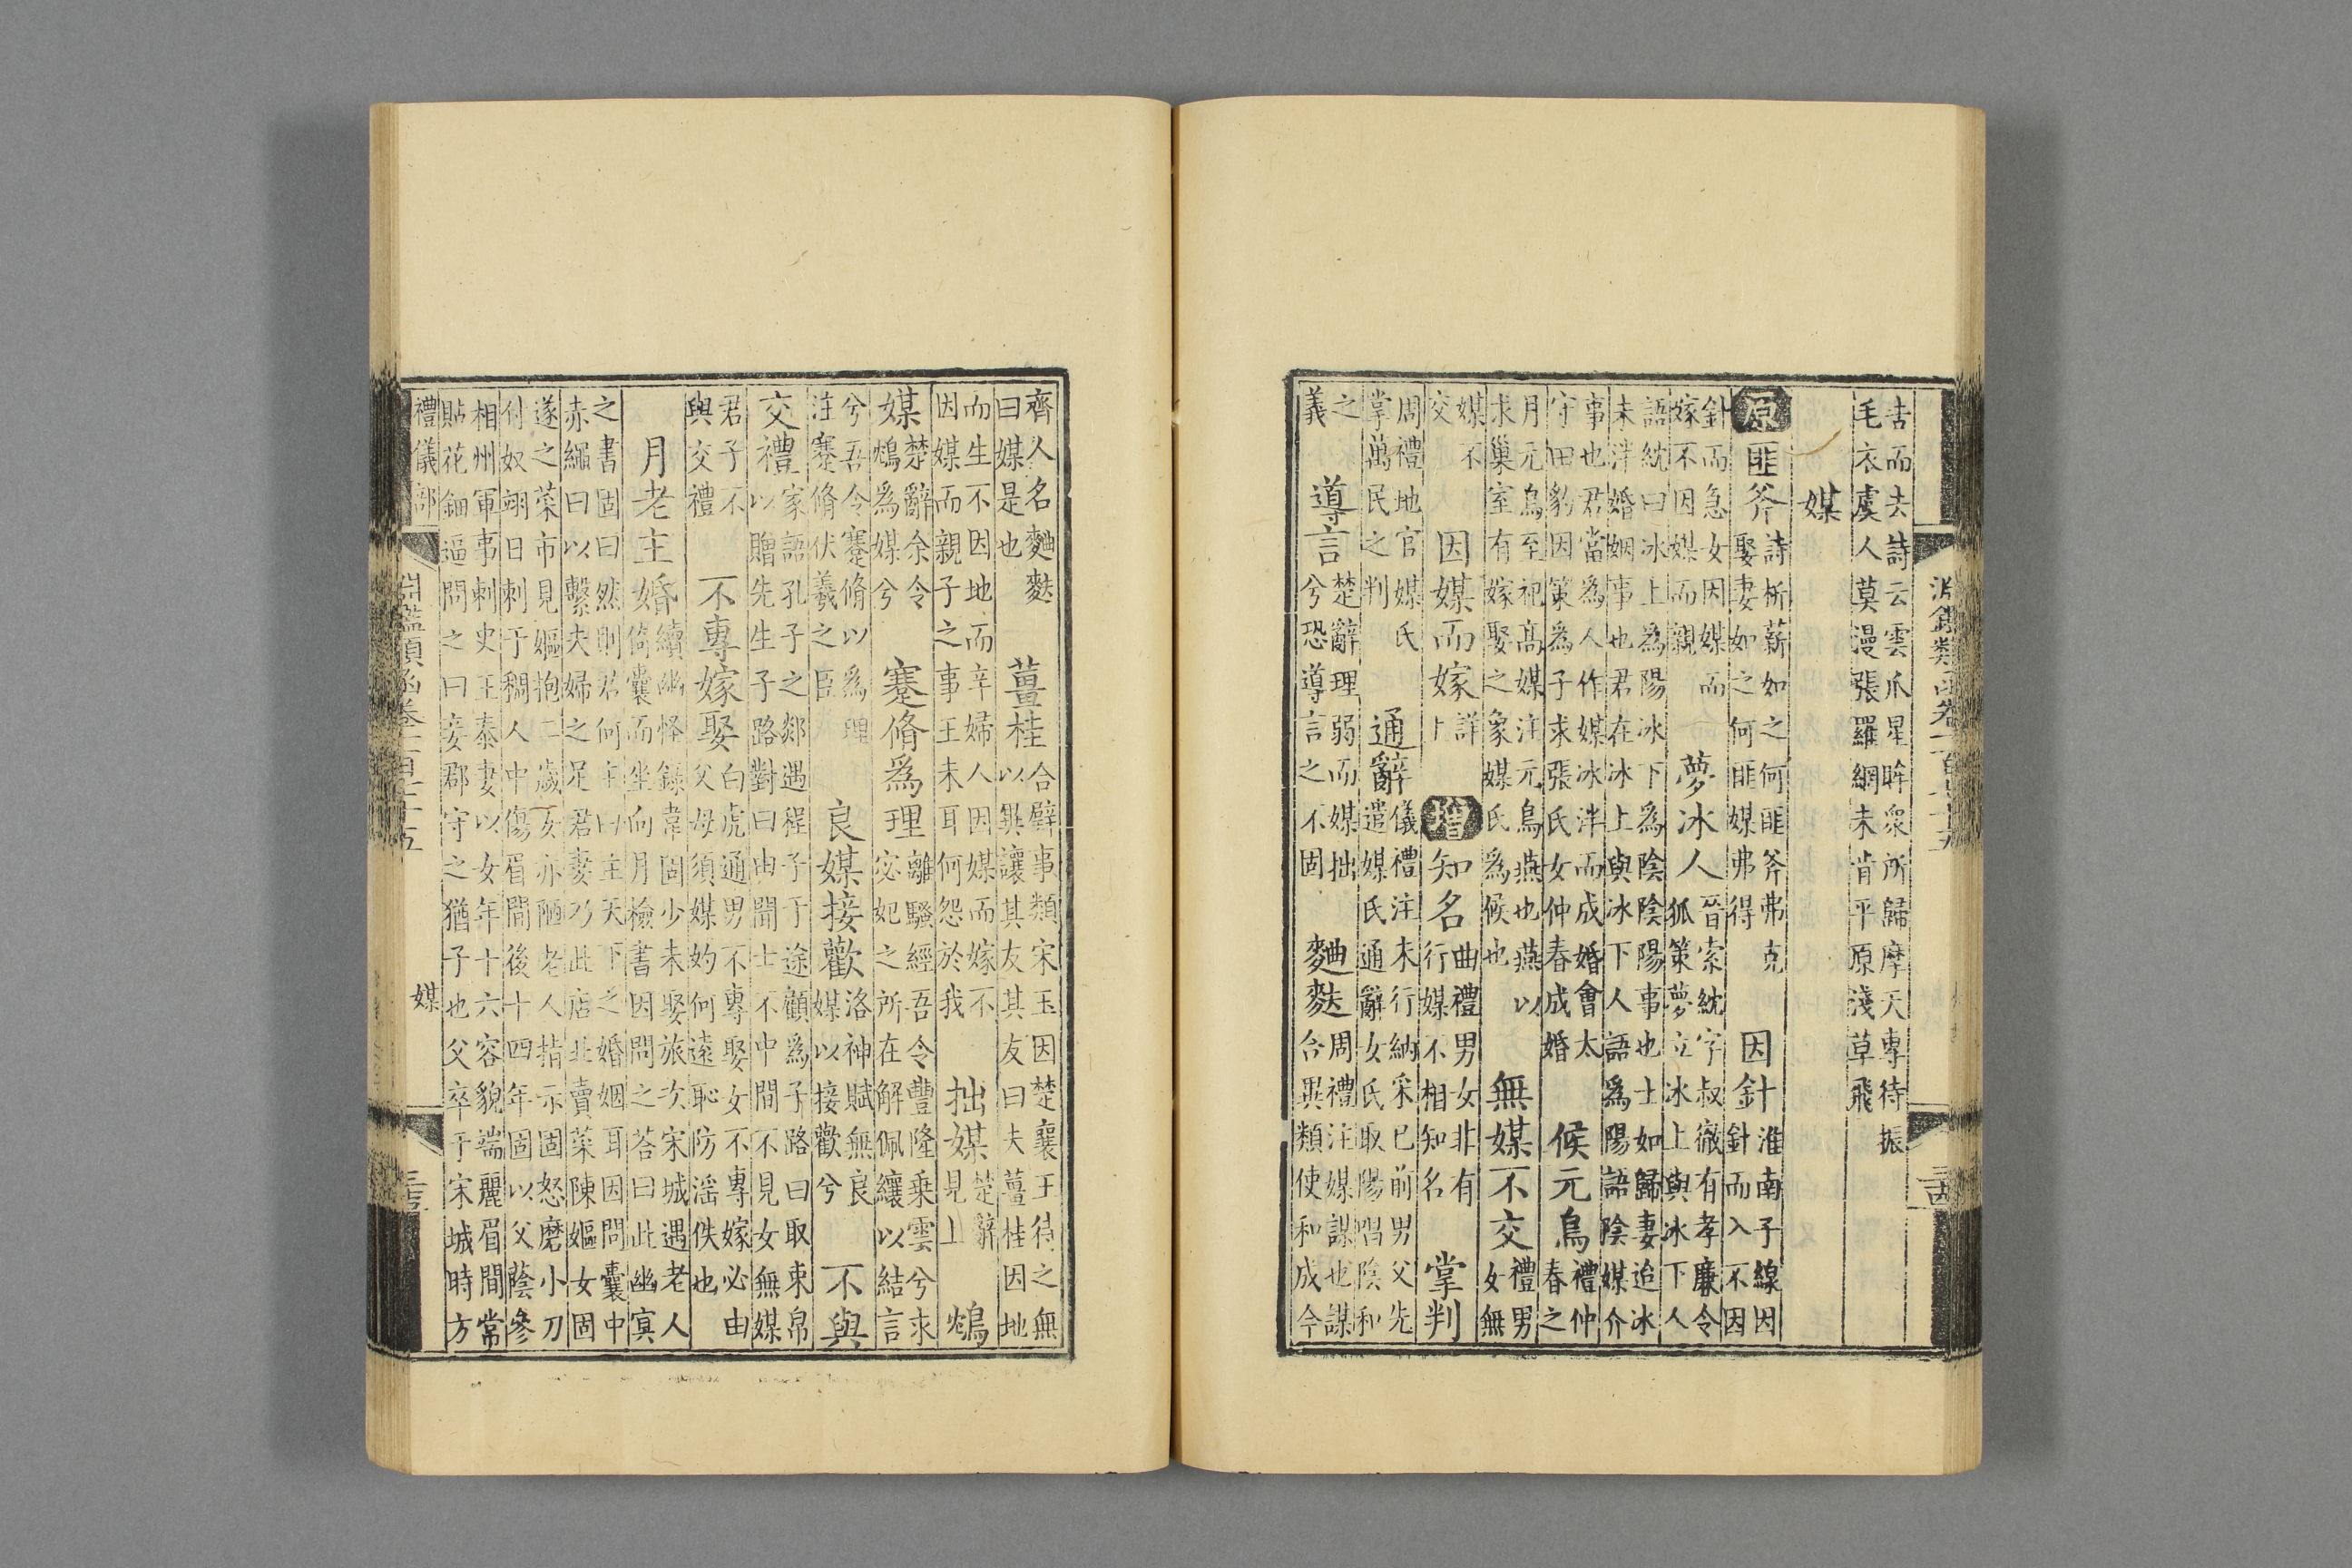 淵鑑類函卷一百七十五
苦而去詩云雲爪星眸衆所歸摩天專待振
毛衣虞人莫漫張羅網未肯平原淺草飛
媒
原 匪斧 詩析薪如之何匪斧弗克娶妻如之何匪媒弗得 因針 淮南子線因針而入不因
針而急女因媒而嫁不因媒而親 夢冰人 晉索紞字叔徹有孝廉令狐策夢立冰上與冰下人
語紞曰冰上爲陽冰下爲陰陰陽事也士如歸妻迨冰未泮婚姻事也君在冰上與冰下人語爲陽語陰媒介
事也君當爲人作媒冰泮而成婚會太守田豹因策爲子求張氏女仲春成婚 候元鳥 禮仲春之
月元鳥至祀高媒注元鳥燕也燕以求巢室有嫁娶之象媒氏爲候也 無媒不交 禮男女無
媒不交 因媒而嫁 詳上 增 知名 曲禮男女非有行媒不相知名 掌判
周禮地官媒氏掌萬民之判 通辭 儀禮注未行納采已前男父先遣媒氏通辭女氏取陽唱陰和
之義 導言 楚辭理弱而媒拙兮恐導言之不固 麯麩 周禮注媒謀也謀合異類使和成今
齊人名麯麩曰媒是也 薑桂 合璧事類宋玉因楚襄王待之無以異讓其友其友曰夫薑桂因地
而生不因地而辛婦人因媒而嫁不因媒而親子之事王未耳何怨於我 拙媒 楚辭見上 鴆
媒 楚辭余令鴆爲媒兮 蹇脩爲理 離騷經吾令豐隆乗雲兮求宓妃之所在解佩纕以結言
兮吾令蹇脩以爲理注蹇脩伏羲之臣 良媒接歡 洛神賦無良媒以接歡兮 不與
交禮 家語孔子之郯遇程子于途顧爲子路曰取束帛以贈先生子路對曰由聞士不中間不見女無媒
君子不與交禮 不專嫁娶 白虎通男不專娶女不專嫁必由父母須媒妁何遠恥防滛佚也
月老主婚 續幽怪錄韋固少未娶旅次宋城遇老人倚囊而坐向月檢書因問之荅曰此幽冥
之書固曰然則君何主曰主天下之婚姻耳因問囊中赤繩曰以繫夫婦之足君妻乃此店北賣菜陳嫗女固
遂之菜市見嫗抱二歲女亦陋老人指示固怒磨小刀付奴翊日刺于稠人中傷眉間後十四年固以父蔭參
相州軍事刺史王泰妻以女年十六容貌端麗眉間常貼花鈿逼問之曰妾郡守之猶子也父卒于宋城時方
禮儀部 淵鑑類函卷一百七十五 媒